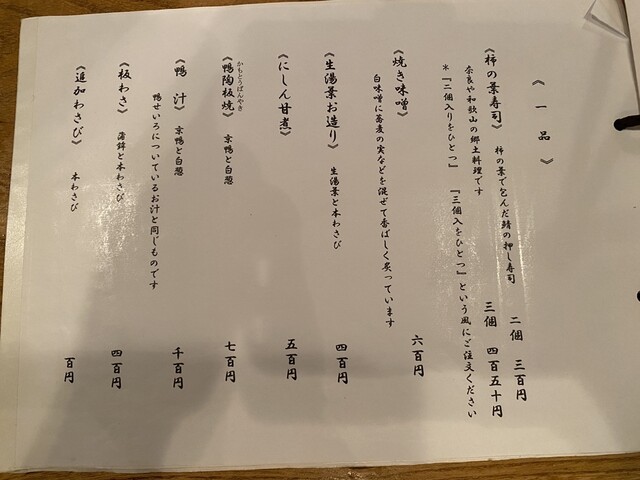 《一品》
《柿の葉寿司》 柿の葉で包んだ鯖の押し寿司 二個 三百円
奈良や和歌山の郷土料理です 三個 四百五十円
＊『二個入りをひとつ』 『三個入をひとつ』という風にご注文ください
《焼き味噌》 六百円
白味噌に蕎麦の実などを混ぜて香ばしく炙っています
《生湯葉お造り》 生湯葉と本わさび 四百円
《にしん甘煮》 五百円
《鴨陶板焼》 京鴨と白葱 七百円
かもとうばんやき
《鴨 汁》 京鴨と白葱 千百円
鴨せいろについているお汁と同じものです
《板わさ》 蒲鉾と本わさび 四百円
《追加わさび》 本わさび 百円